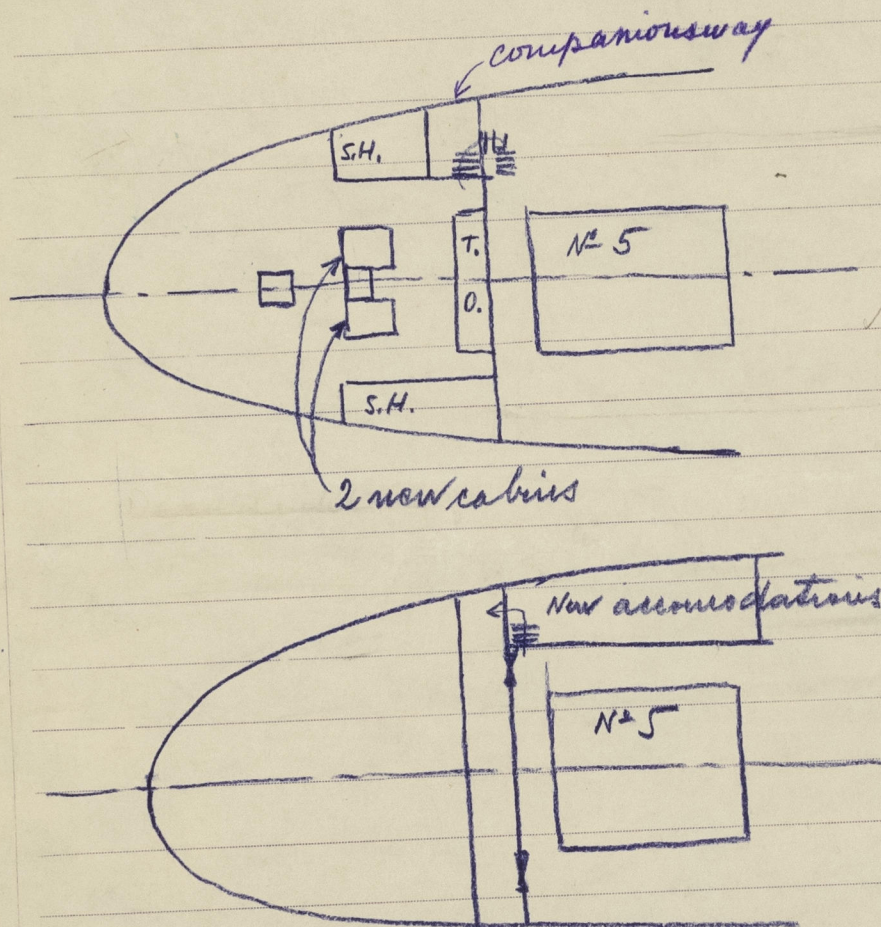 companionsway
S.H.
T.
O.
Nº 5
S.H.
2 new cabins
New accomodations
Nº 5